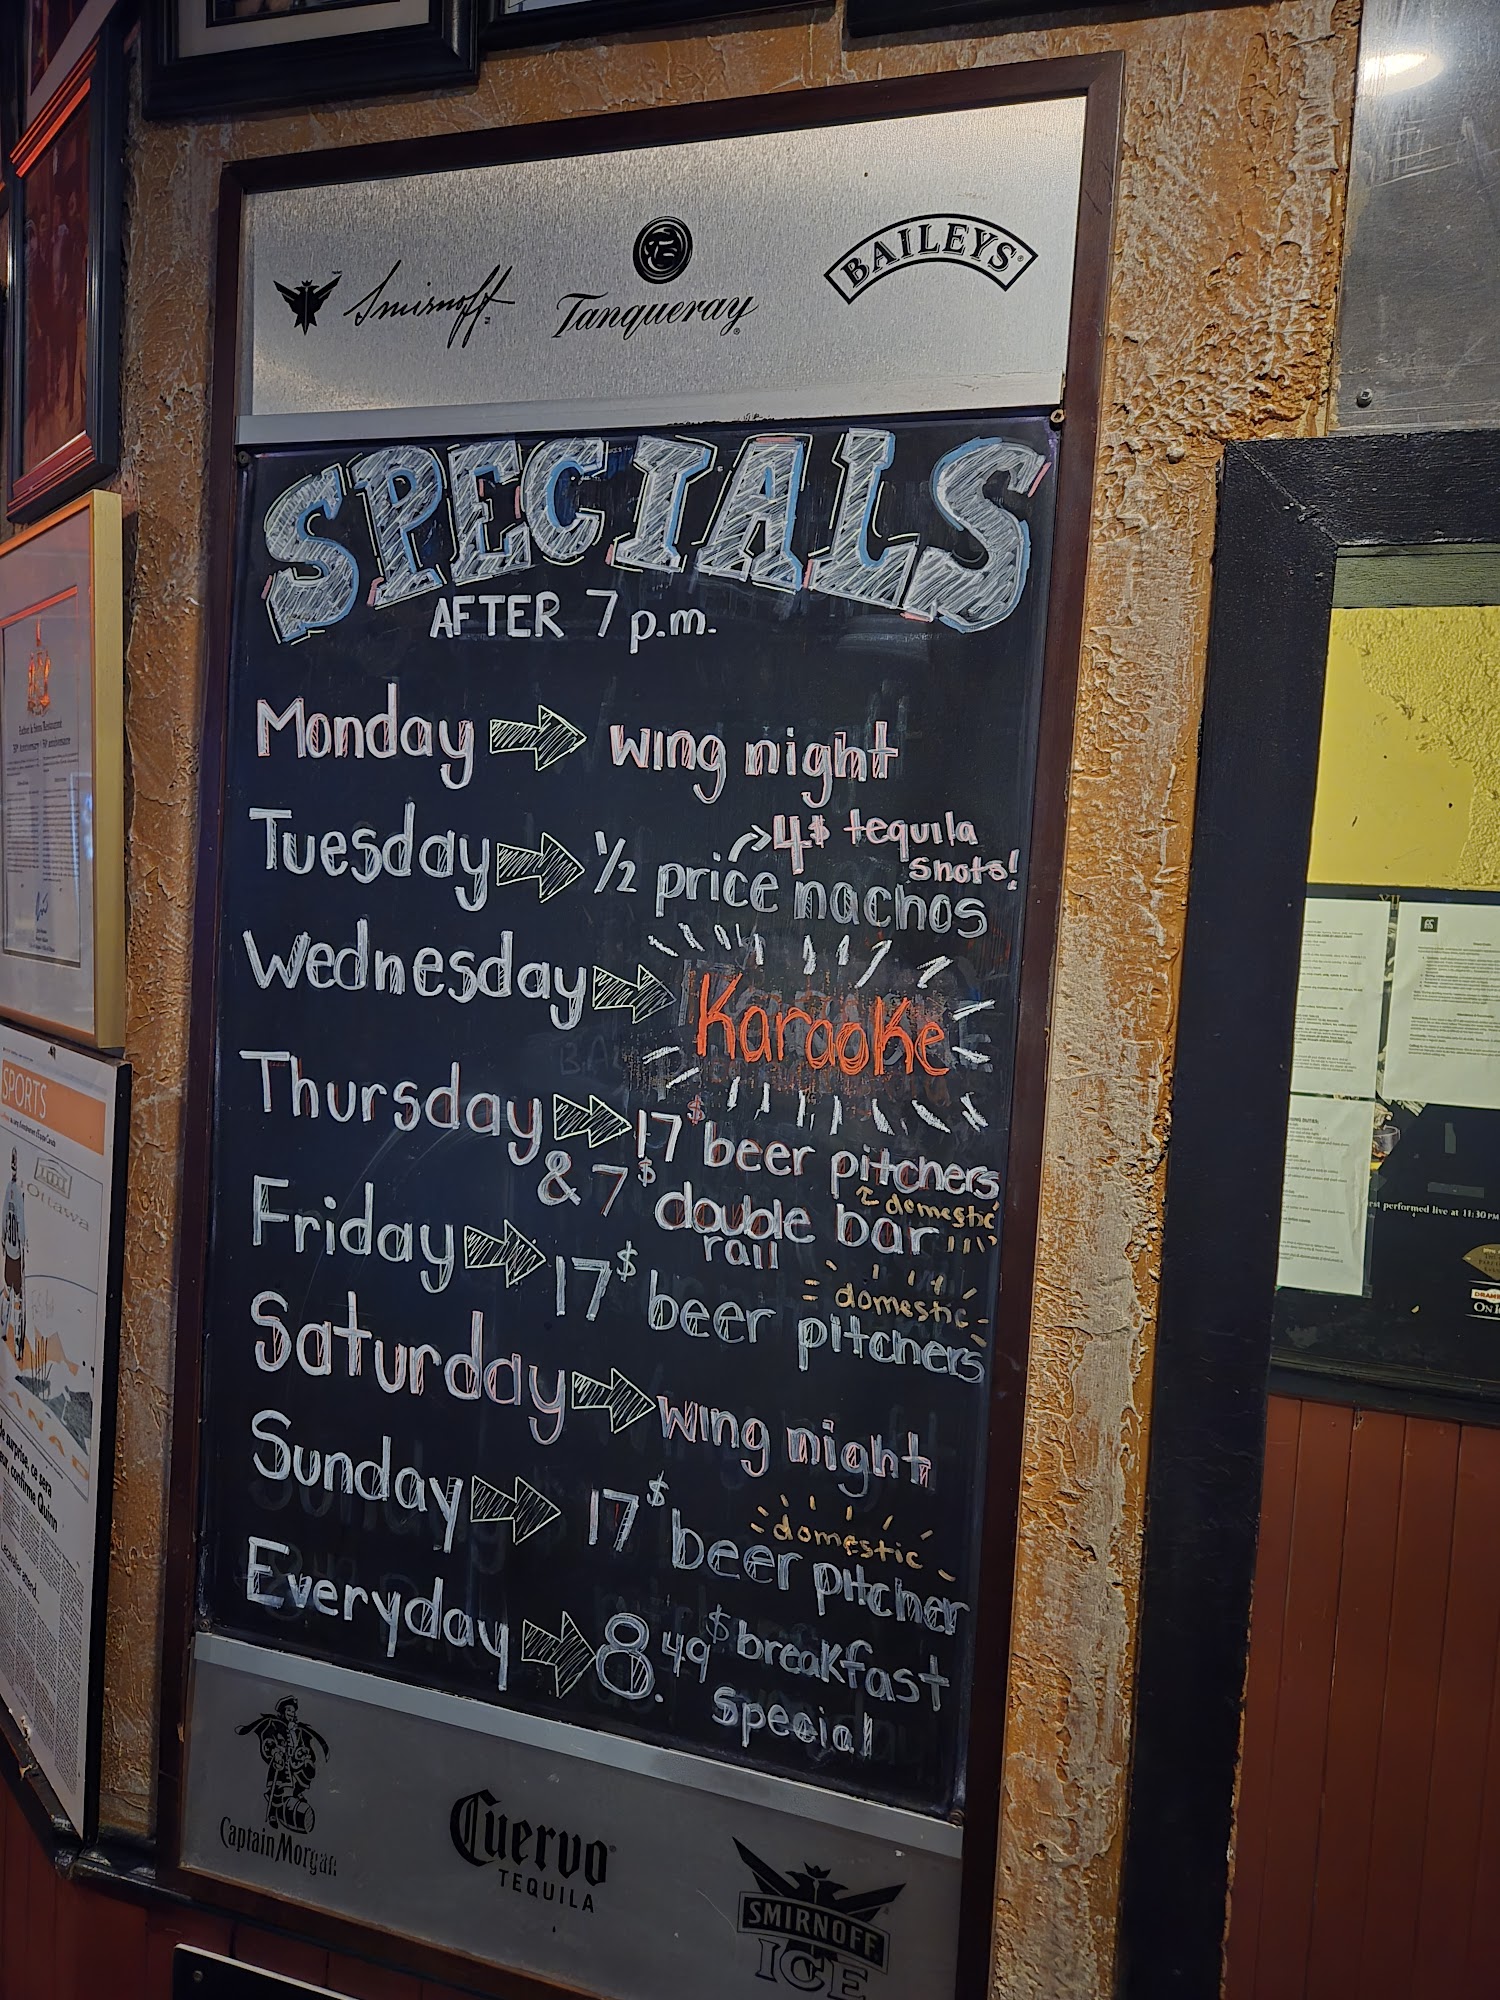 Smirnoff
Tanqueray
BAILEYS
SPECIALS
AFTER 7 p.m.
Monday wing night
Tuesday 1/2 price nachos
4$ tequila
shots!
Wednesday Karaoke
Thursday 17$ beer pitchers
domestic
& 7$ double bar
rail
Friday 17$ beer pitchers
domestic
Saturday wing night
Sunday 17$ beer pitcher
domestic
Everyday 8.49$ breakfast
special
Captain Morgan
Cuervo
TEQUILA
SMIRNOFF
ICE
SPORTS
Ottawa
performed live at 11:30 PM